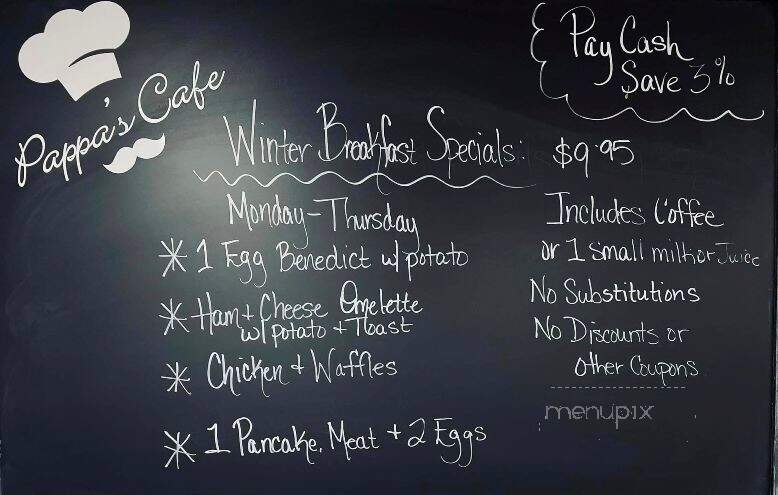 Pappa's Cafe
Pay Cash
Save 3%
Winter Breakfast Specials: $9.95
Monday-Thursday
* 1 Egg Benedict w/ potato
* Ham + Cheese Omelette
w/ potato + Toast
* Chicken + Waffles
* 1 Pancake, Meat + 2 Eggs
Includes Coffee
or 1 small milk or Juice
No Substitutions
No Discounts or
Other Coupons
menupix